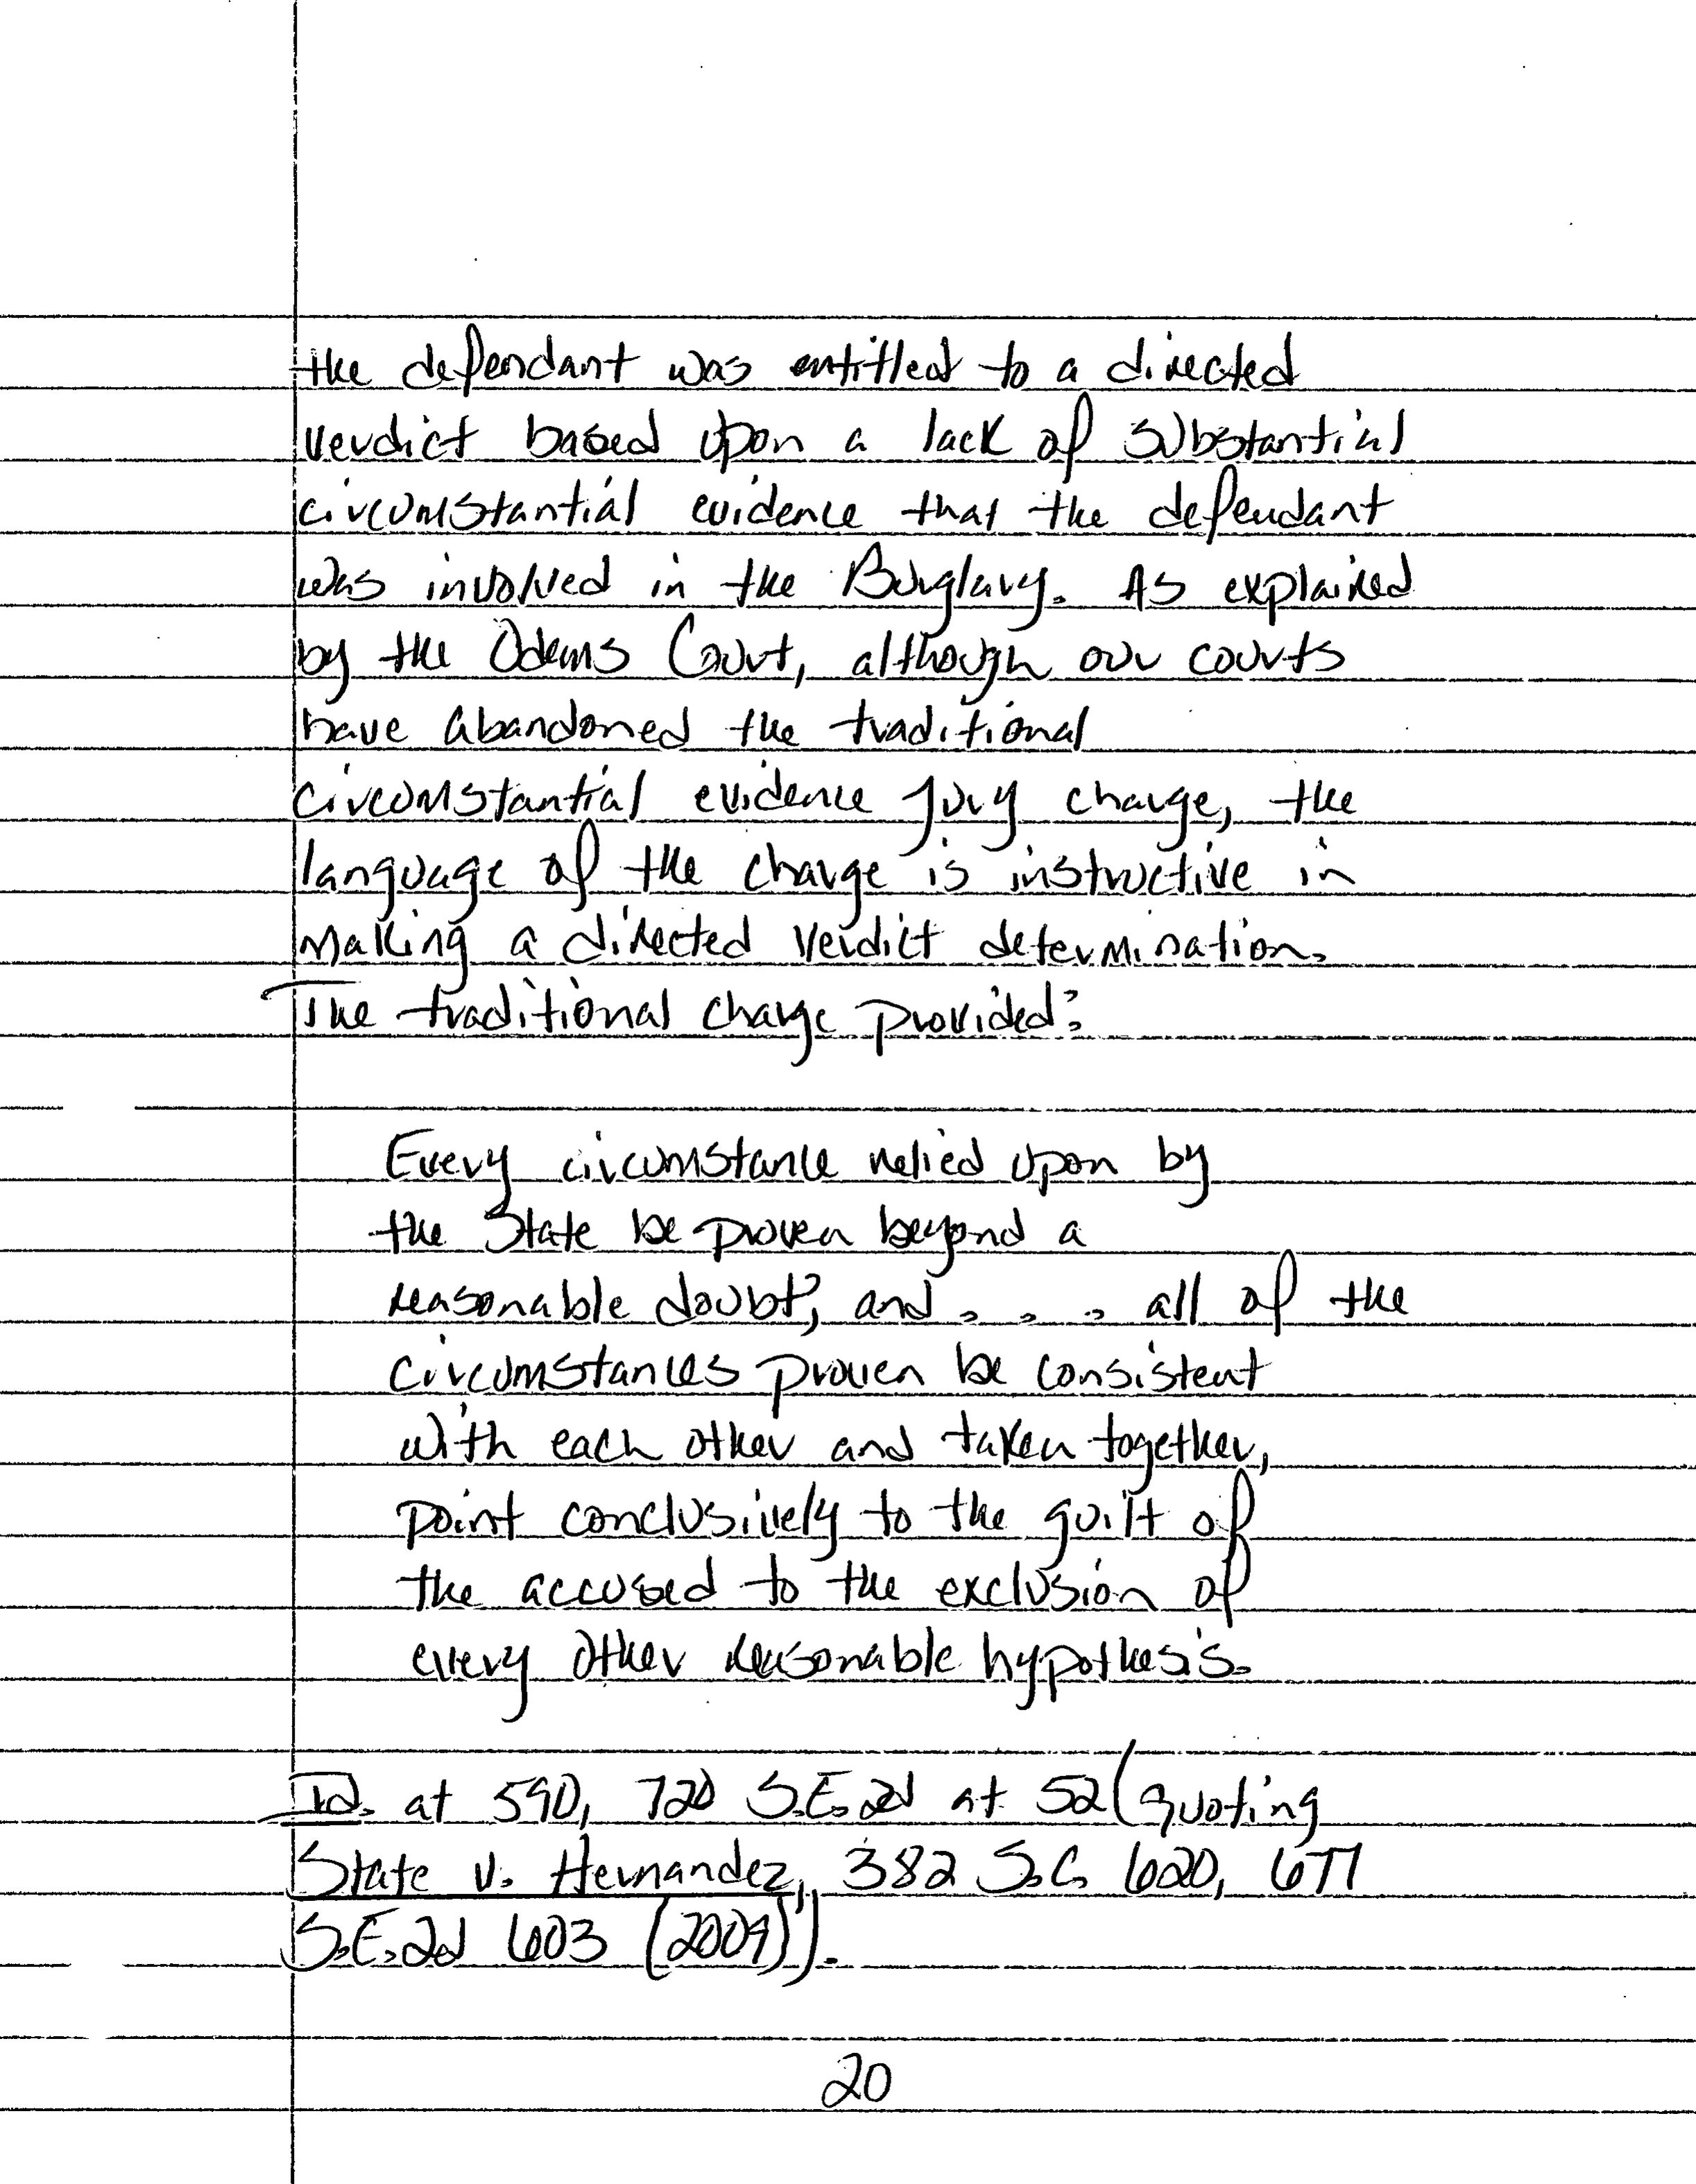 the defendant was entitled to a directed
verdict based upon a lack of substantial
circumstantial evidence that the defendant
was involved in the Burglary. As explained
by the Odems Court, although our courts
have abandoned the traditional
circumstantial evidence jury charge, the
language of the charge is instructive in
making a directed verdict determination.
The traditional charge provided:
Every circumstance relied upon by
the State be proven beyond a
reasonable doubt; and . . . all of the
circumstances proven be consistent
with each other and taken together,
point conclusively to the guilt of
the accused to the exclusion of
every other reasonable hypothesis.
Id. at 590, 720 S.E.2d at 52 (quoting
State v. Hernandez, 382 S.C. 620, 677
S.E.2d 603 (2009)).
20